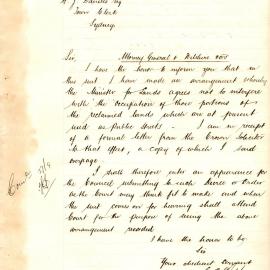 H. J. Daniels Esq
Town Clerk
Sydney
Sir,
Attorney General v Wilshire &
I have the honor to inform you that in
this suit I have made an arrangement whereby
the Minister for Lands agrees not to interfere
with the occupation of those portions of
the reclaimed lands which are at present
used as Public Streets. I am in receipt
of a formal letter from the Crown Solicitor
to that effect, a copy of which I send
I shall therefore enter an appearance for
the Council submitting to such Decree or Order
as the Court may think fit to make and when
the suit comes on for hearing shall attend
Court for the purpose of seeing the above
arrangement recorded.
I have the honor to be
Sir
Your obedient servant